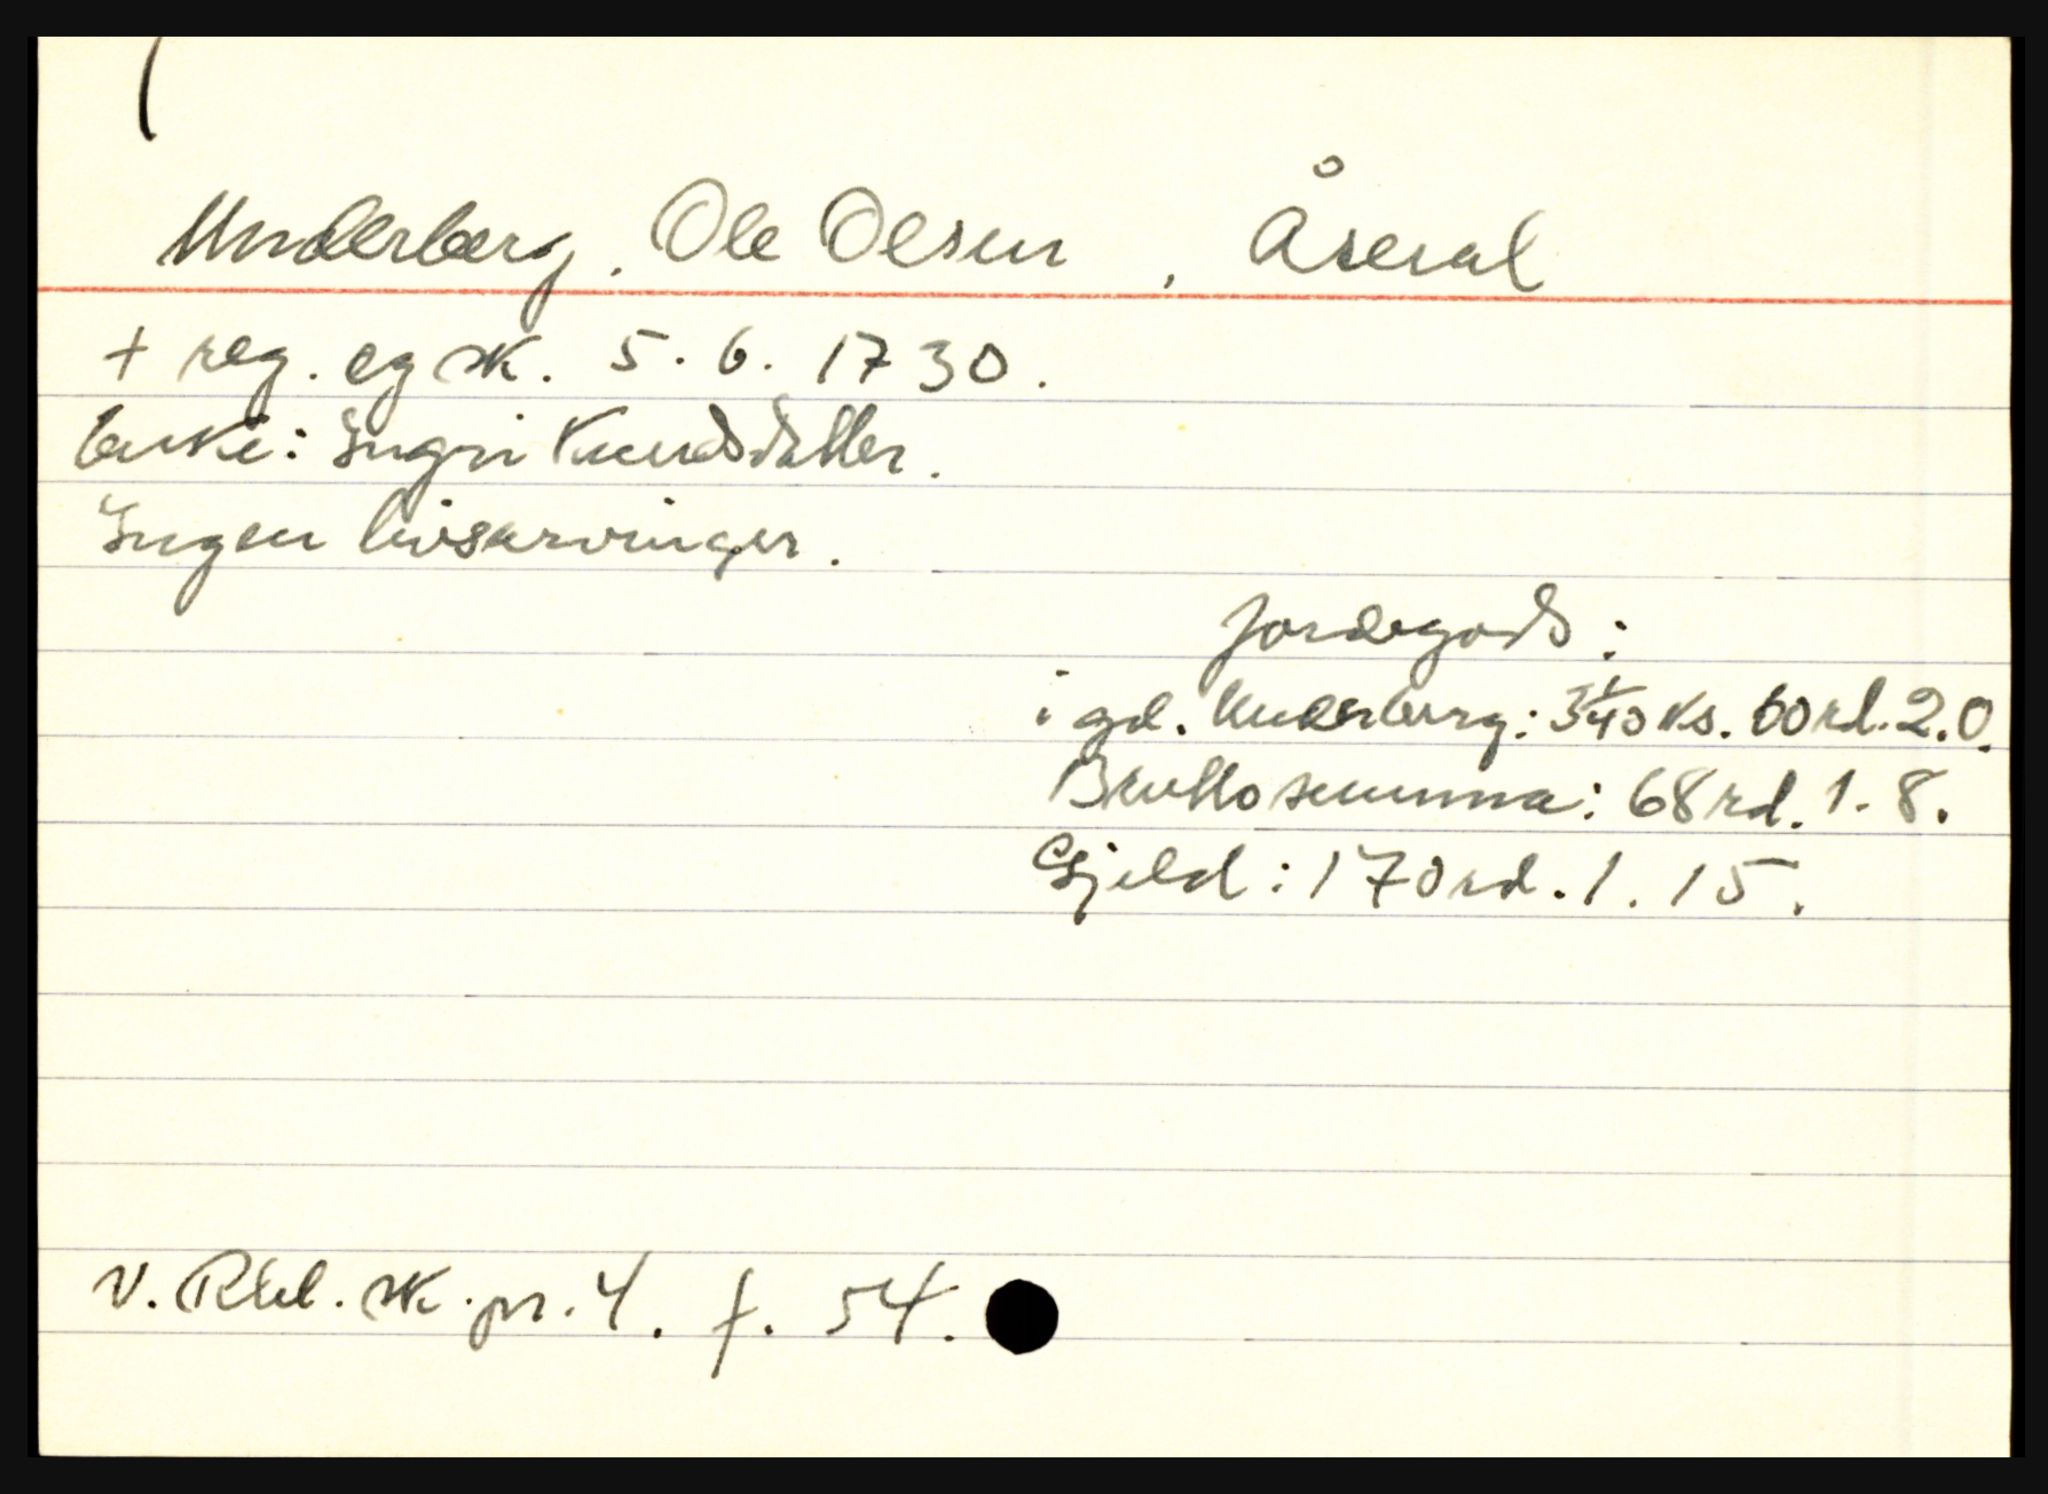 Underberg. Ole Olsen, Åseral
+ reg. og sk. 5. 6. 1730.
Enke: Ingri Knudsdatter.
Ingen livsarvinger.
Jordegods:
i gd. Underberg: 3 1/40 ks. 60 rd. 2. 0.
Brutto summa: 68 rd. 1. 8.
Gjeld: 170 rd. 1. 15.
v. Rbl. sk. pr. 4. f. 54.